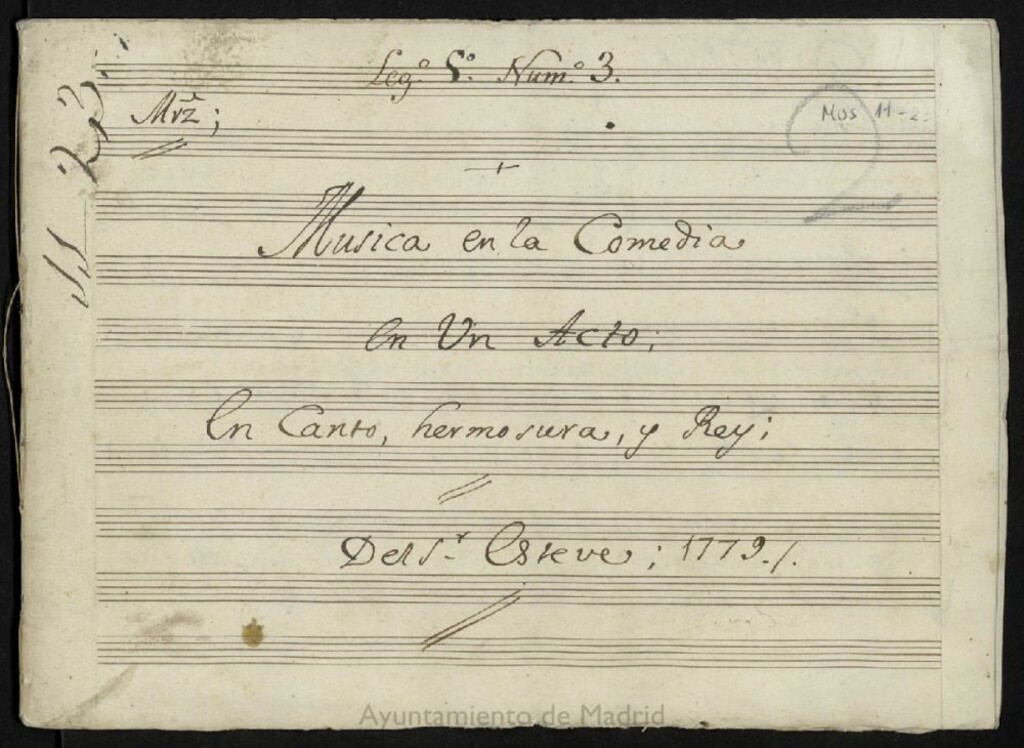 Leg.º 5.º Num.º 3.
Mrz;
Mus 11-2
Musica en la Comedia
en Un Acto;
En Canto, hermosura, y Rey;
Del S.r Esteve; 1779./.
Ayuntamiento de Madrid